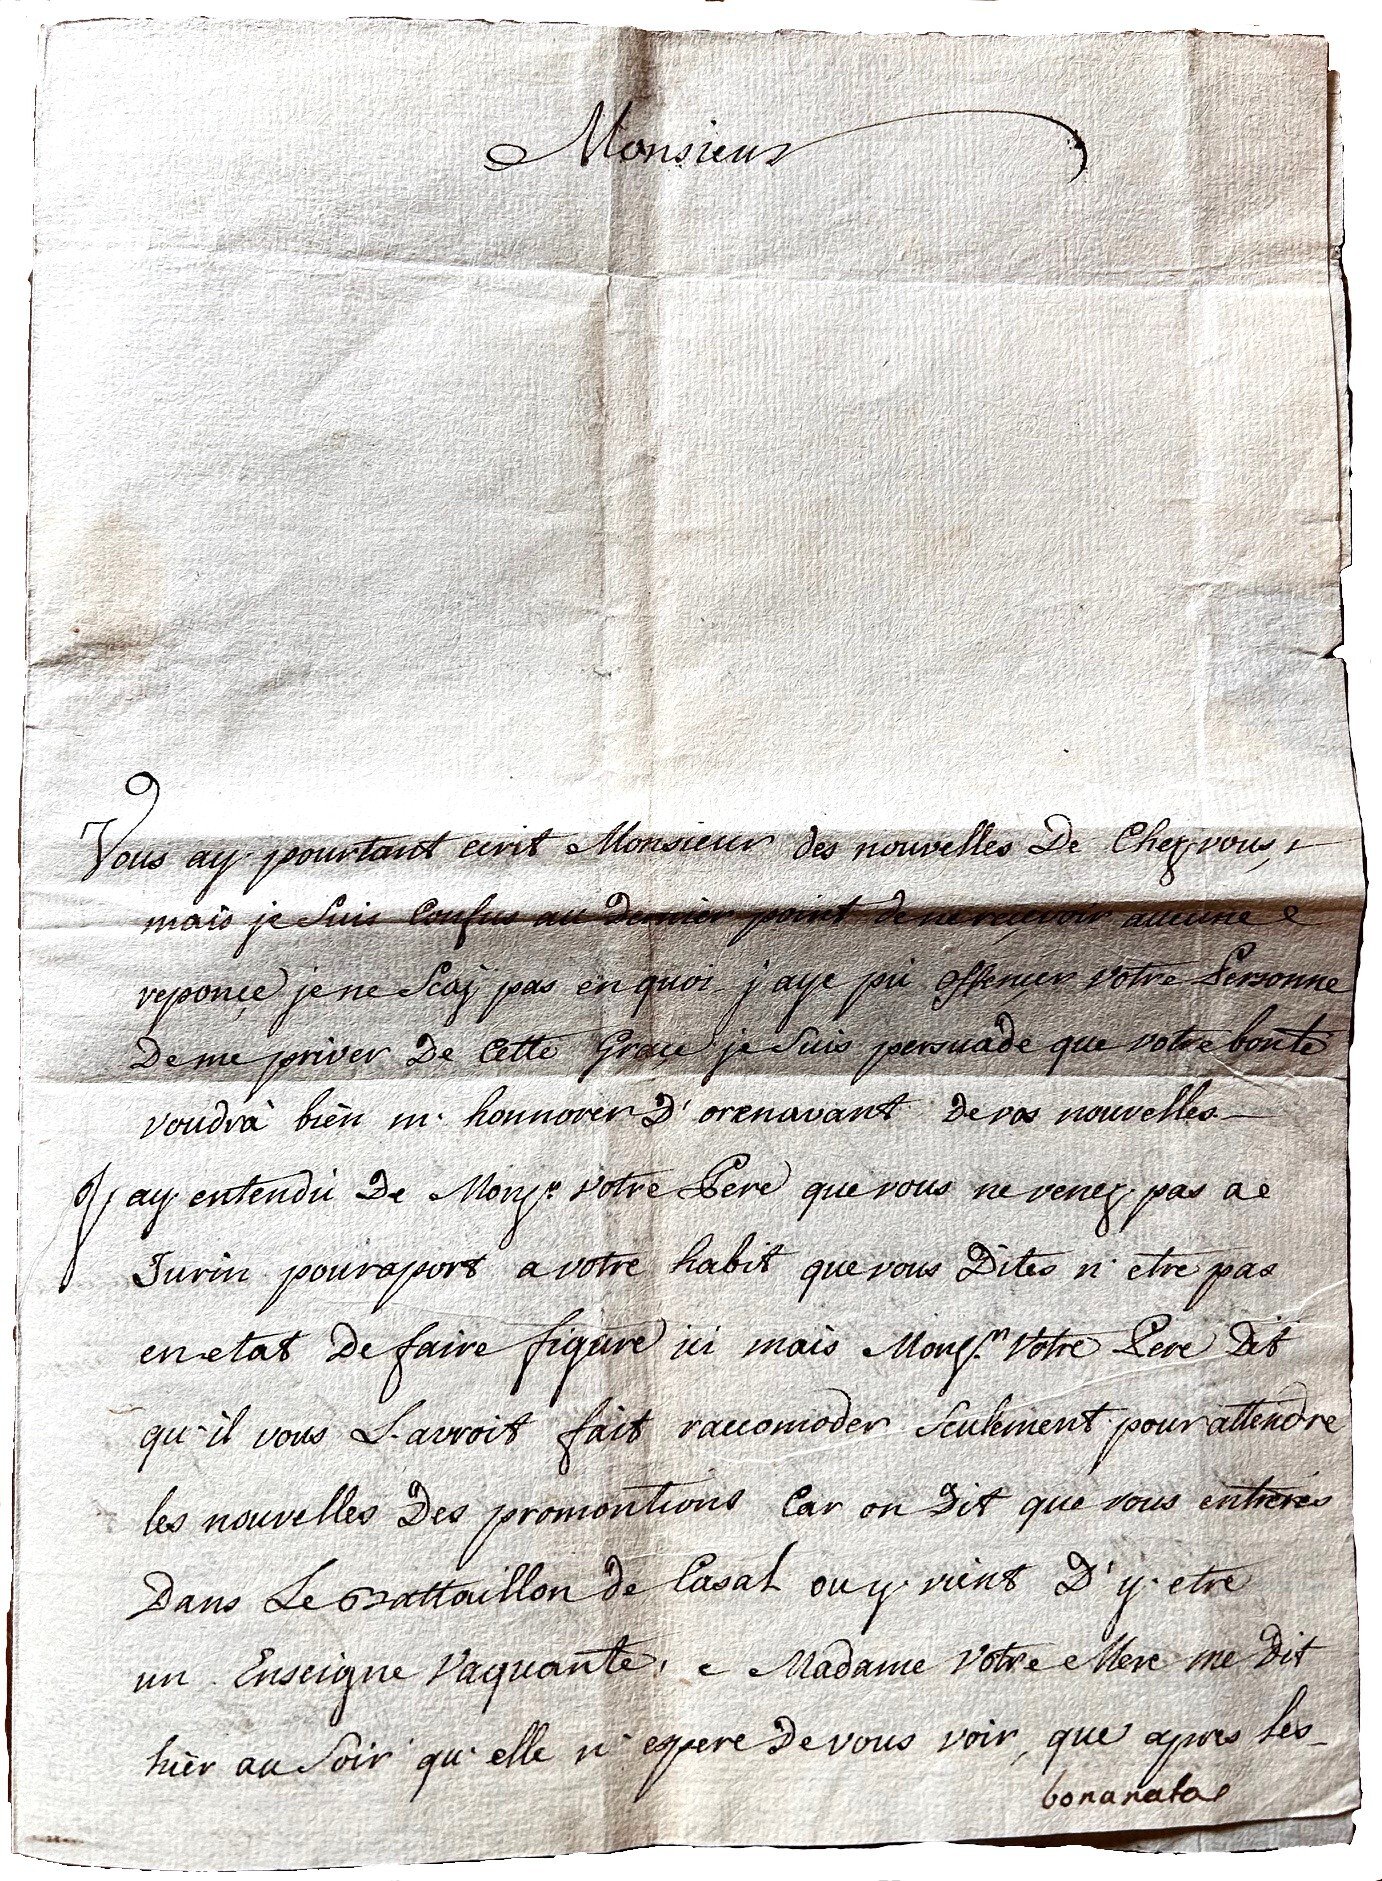 Monsieur
Vous ay pourtant ecrit Monsieur des nouvelles De Chez vous,
mais je Suis Confus au Dernier point de ne recevoir aucune
reponçe je ne Scaÿ pas en quoi j'aye pù offencer votre Personne
De me priver De Cette Graçe je Suis persuade que votre bonte
voudrà bièn m'honnorer D'orenavant de vos nouvelles
J'ay entendù De Monsr votre Pere que vous ne venez pas a
Turin pour aport a votre habit que vous Dites n'etre pas
en etat De faire figure ici mais Monsr votre Pere Dit
qu'il vous L'avroit fait raccomoder Seulement pour attendre
les nouvelles Des promontions Car on Dit que vous entrerès
Dans Le Battaillon de Casal ou y vient D'y etre
un Enseigne Vaquante, e Madame Votre Mere me Dit
hièr au Soir qu'elle n'espere De vous voir, que apres les
bonanata